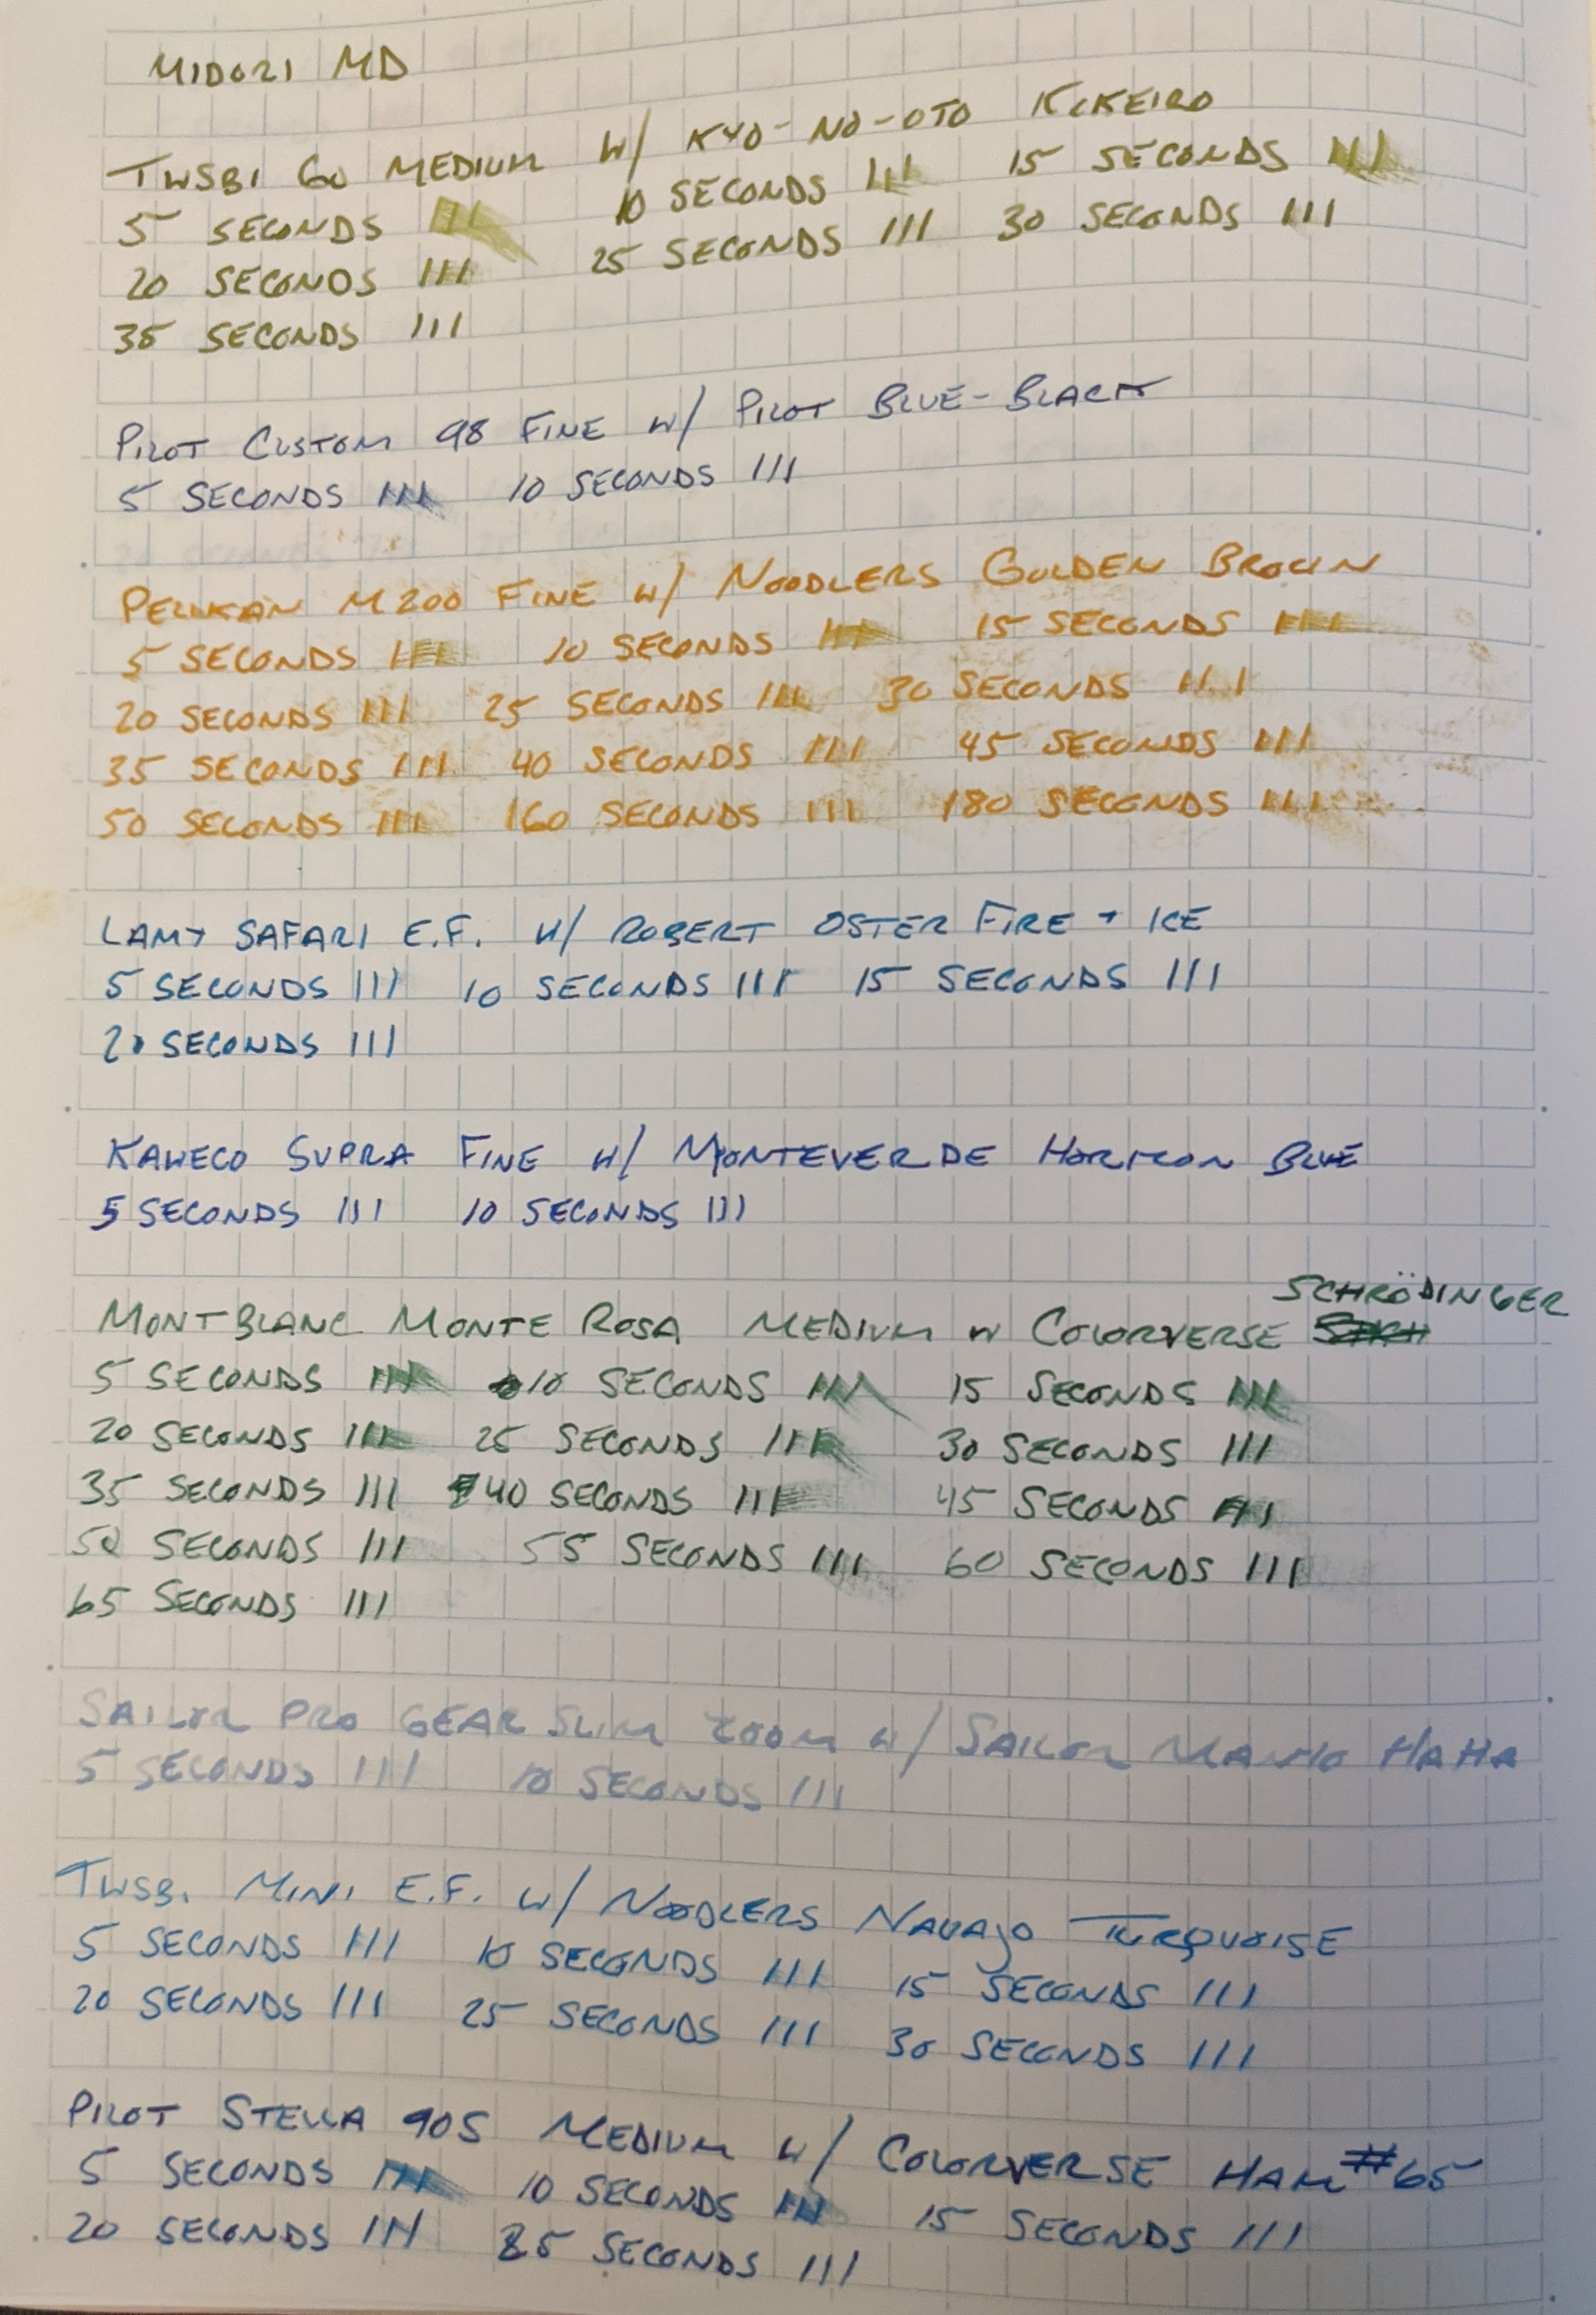 MIDORI MD
TWSBI GO MEDIUM W/ KYO-NO-OTO KOKEIRO
5 SECONDS III 10 SECONDS III 15 SECONDS III
20 SECONDS III 25 SECONDS III 30 SECONDS III
35 SECONDS III
PILOT CUSTOM 98 FINE W/ PILOT BLUE-BLACK
5 SECONDS III 10 SECONDS III
PELIKAN M200 FINE W/ NOODLERS GOLDEN BROWN
5 SECONDS III 10 SECONDS III 15 SECONDS III
20 SECONDS III 25 SECONDS III 30 SECONDS III
35 SECONDS III 40 SECONDS III 45 SECONDS III
50 SECONDS III 160 SECONDS III 180 SECONDS III
LAMY SAFARI E.F. W/ ROBERT OSTER FIRE + ICE
5 SECONDS III 10 SECONDS III 15 SECONDS III
20 SECONDS III
KAWECO SUPRA FINE W/ MONTEVERDE HORIZON BLUE
5 SECONDS III 10 SECONDS III
SCHRÖDINGER
MONTBLANC MONTE ROSA MEDIUM W COLORVERSE
5 SECONDS III 10 SECONDS III 15 SECONDS III
20 SECONDS III 25 SECONDS III 30 SECONDS III
35 SECONDS III 40 SECONDS III 45 SECONDS III
50 SECONDS III 55 SECONDS III 60 SECONDS III
65 SECONDS III
SAILOR PRO GEAR SLIM ZOOM W/ SAILOR MANYO HAHA
5 SECONDS III 10 SECONDS III
TWSBI MINI E.F. W/ NOODLERS NAVAJO TURQUOISE
5 SECONDS III 10 SECONDS III 15 SECONDS III
20 SECONDS III 25 SECONDS III 30 SECONDS III
PILOT STELLA 90S MEDIUM W/ COLORVERSE HAM #65
5 SECONDS III 10 SECONDS III 15 SECONDS III
20 SECONDS III 25 SECONDS III